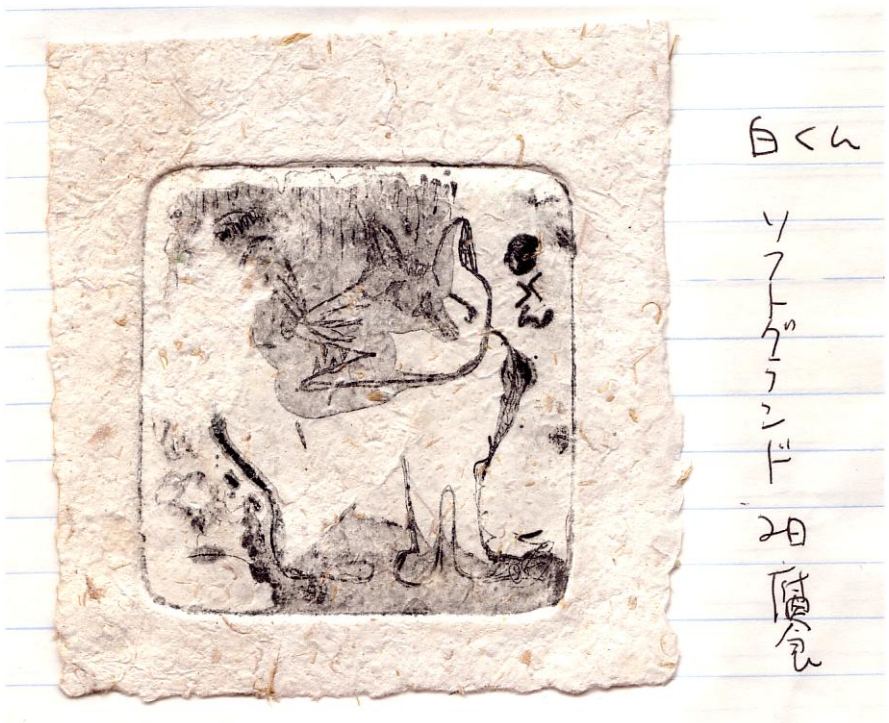 白くん
ソフトグランド 2日 腐食